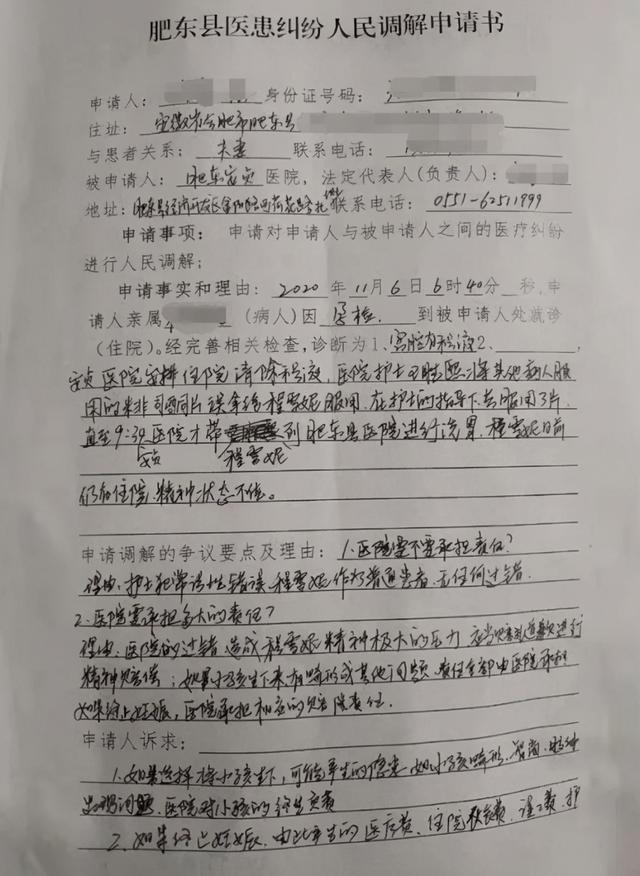 肥东县医患纠纷人民调解申请书
申请人： 身份证号码：
住址： 安徽省合肥市肥东县
与患者关系： 夫妻 联系电话：
被申请人： 肥东安贞 医院，法定代表人(负责人)：
地址： 肥东县经济开发区 联系电话： 0551-62511999
申请事项： 申请对申请人与被申请人之间的医疗纠纷
进行人民调解；
申请事实和理由： 2020 年 11 月 6 日 6 时 40 分 秒，申
请人亲属 (病人)因 孕检. 到被申请人处就诊
(住院)。经完善相关检查，诊断为1、宫腔有积液2、
安贞医院安排住院清除积液，医院护士 将其他病人服
用的米非司酮片误拿给程雪妮服用，在护士的指导下共服用3片
直至9:30医院才带 到肥东县医院进行洗胃，程雪妮目前
安贞 程雪妮
仍在住院，精神状态不佳。
申请调解的争议要点及理由： 1.医院要不要承担责任？
理由：护士犯常识性错误，程雪妮作为普通患者，无任何过错.
2.医院要承担多大的责任？
理由：医院的过错造成程雪妮精神极大的压力，应当赔礼道歉进行
精神赔偿；如果小孩生下来有畸形或其他问题，责任全部由医院承担
如果终止妊娠，医院承担相应的赔偿责任.
申请人诉求：
1.如果选择将小孩生下，可能产生的隐患如小孩畸形、智商、精神
出现问题，医院对小孩的终生负责
2、如果终止妊娠，由此产生的医疗费、住院伙食费、误工费、护